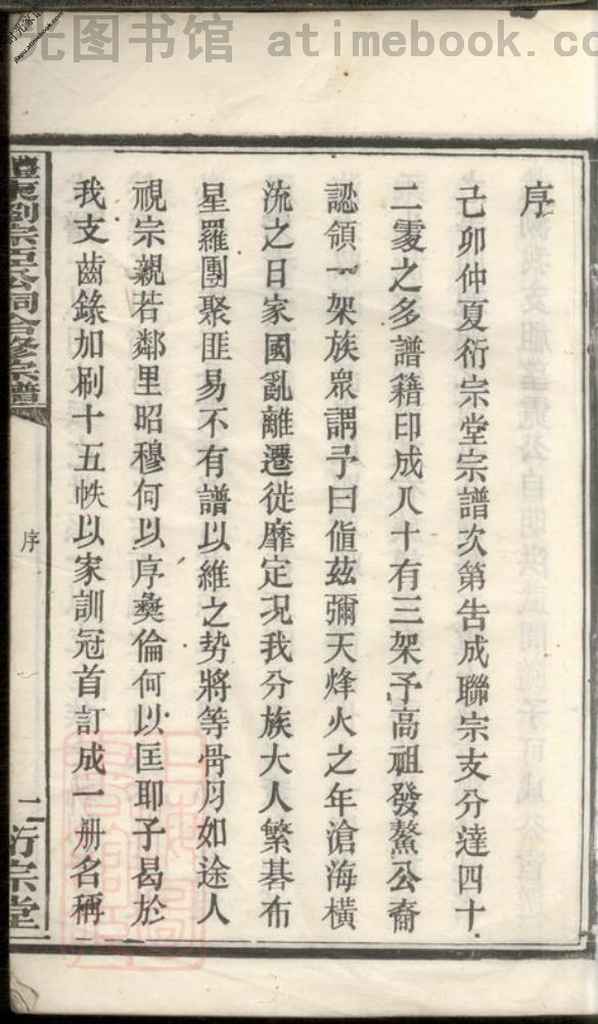 光图书馆 atimebook.co
序
己卯仲夏衍宗堂宗譜次第告成聯宗支分達四十
二䨱之多譜籍印成八十有三架予高祖發鰲公裔
認領一架族衆謂予曰値茲彌天烽火之年滄海橫
流之日家國亂離遷徙靡定況我分族大人繁碁布
星羅團聚匪易不有譜以維之势將等骨月如途人
視宗親若鄰里昭穆何以序彝倫何以匡耶子曷於
我支齒錄加刷十五帙以家訓冠首訂成一册名稱
公祠合修宗譜
序
二
衍宗堂